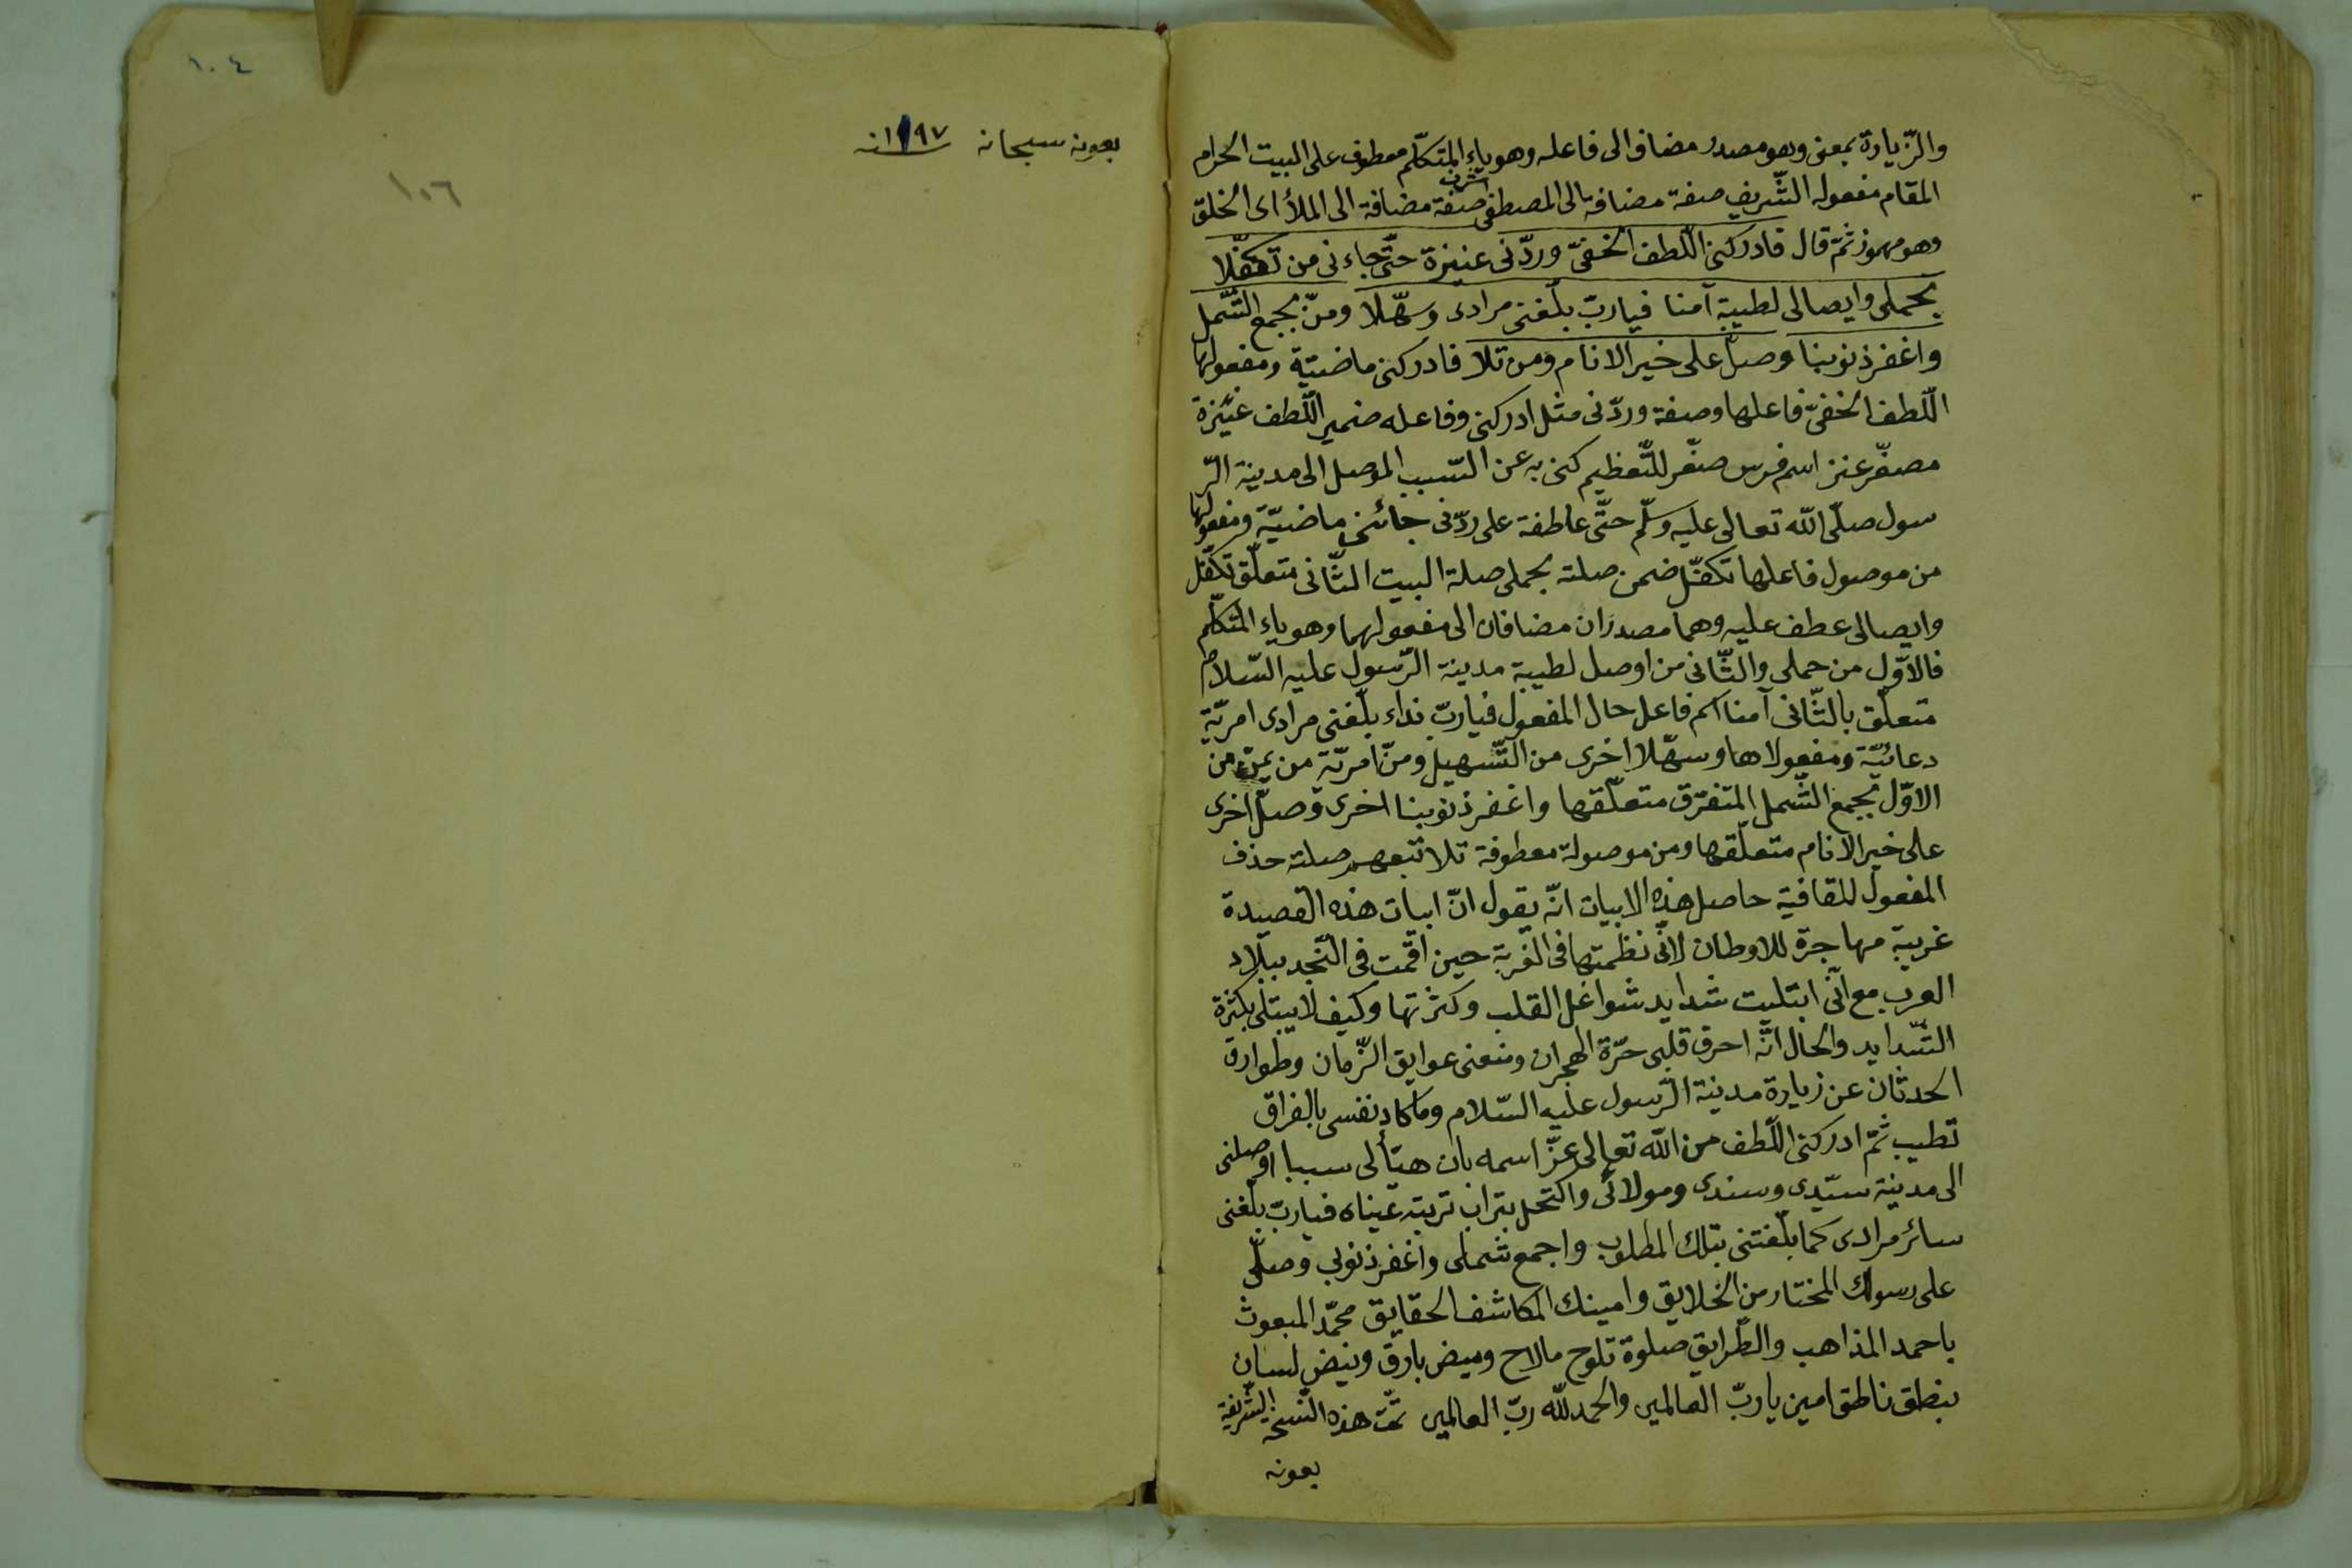 والزّيارة بمعنى وهو مصدر مضاف الى فاعله وهو ياء المتكلّم معطوف على البيت الحرام
المقام مفعوله الشّريف صفة مضافة الى المصطفى اشرف صفة مضافة الى الملأ اى الخلق
وهو مهموز ثمّ قال فادركنى اللّطف الخفىّ وردّنى عنيزة حتّى جاءنى من تكفّلا
بحملى وايصالى لطيبة آمنا فيا ربّ بلّغنى مرادى وسهّلا ومنّ بجمع الشّمل
واغفر ذنوبنا وصلّ على خير الانام ومن تلا فادركنى ماضيّة ومفعولها
اللّطف الخفىّ فاعلها وصفة وردّنى مثل ادركنى وفاعله ضمير اللّطف عنيزة
مصغّر عنز اسم فرس صغّر للتّعظيم كنى به عن السّبب الموصل الى مدينة الرّ
سول صلّى اللّه تعالى عليه وسلّم حتّى عاطفة على ردّنى جائنى ماضيّة ومفعولها
من موصول فاعلها تكفّل ضمن صلته بحملى صلة البيت الثّانى متعلّق تكفّل
وايصالى عطف عليه وهما مصدران مضافان الى مفعولهما وهو ياء المتكلّم
فالاوّل من حملى والثّانى من اوصل لطيبة مدينة الرّسول عليه السّلام
متعلّق بالثّانى آمنا اسم فاعل حال المفعول فيا ربّ نداء بلّغنى مرادى امريّة
دعائيّة ومفعولاها وسهّلا اخرى من التّسهيل ومنّ امريّة من يمنّ من
الاوّل بجمع الشّمل المتفرّق متعلّقها واغفر ذنوبنا اخرى وصلّ اخرى
على خير الانام متعلّقها ومن موصولة معطوفة تلا تبعهم صلته حذف
المفعول للقافية حاصل هذه الابيات انّه يقول انّ ابيات هذه القصيدة
غريبة مهاجرة للاوطان لانّى نظمتها فى الغربة حين اقمت فى النّجد ببلاد
العرب مع انّى ابتليت شدايد شواغل القلب وكثرتها وكيف لا يبتلى بكثرة
الشّدايد والحال انّه احرق قلبى حرّة الهجران ومنعنى عوايق الزّمان وطوارق
الحدثان عن زيارة مدينة الرّسول عليه السّلام وما كاد نفسى بالفراق
تطيب ثمّ ادركنى اللّطف من اللّه تعالى عزّ اسمه بان هيّأ لى سببا اوصلنى
الى مدينة سيّدى وسندى ومولائى واكتحل بتراب تربته عيناه فيا ربّ بلّغنى
سائر مرادى كما بلّغتنى بتلك المطلوب واجمع شملى واغفر ذنوبى وصلّى
على رسولك المختار من الخلايق وامينك المكاشف الحقايق محمّد المبعوث
باحمد المذاهب والطّرايق صلوة تلوح ما لاح وميض بارق ونبض لسان
بنطق ناطق امين يا ربّ العالمين والحمد للّه ربّ العالمين تمّت هذه النّسخة الشّريفة
بعونه
بعونه سبحانه ١١٩٧ سنه
١٠٤
١٠٦